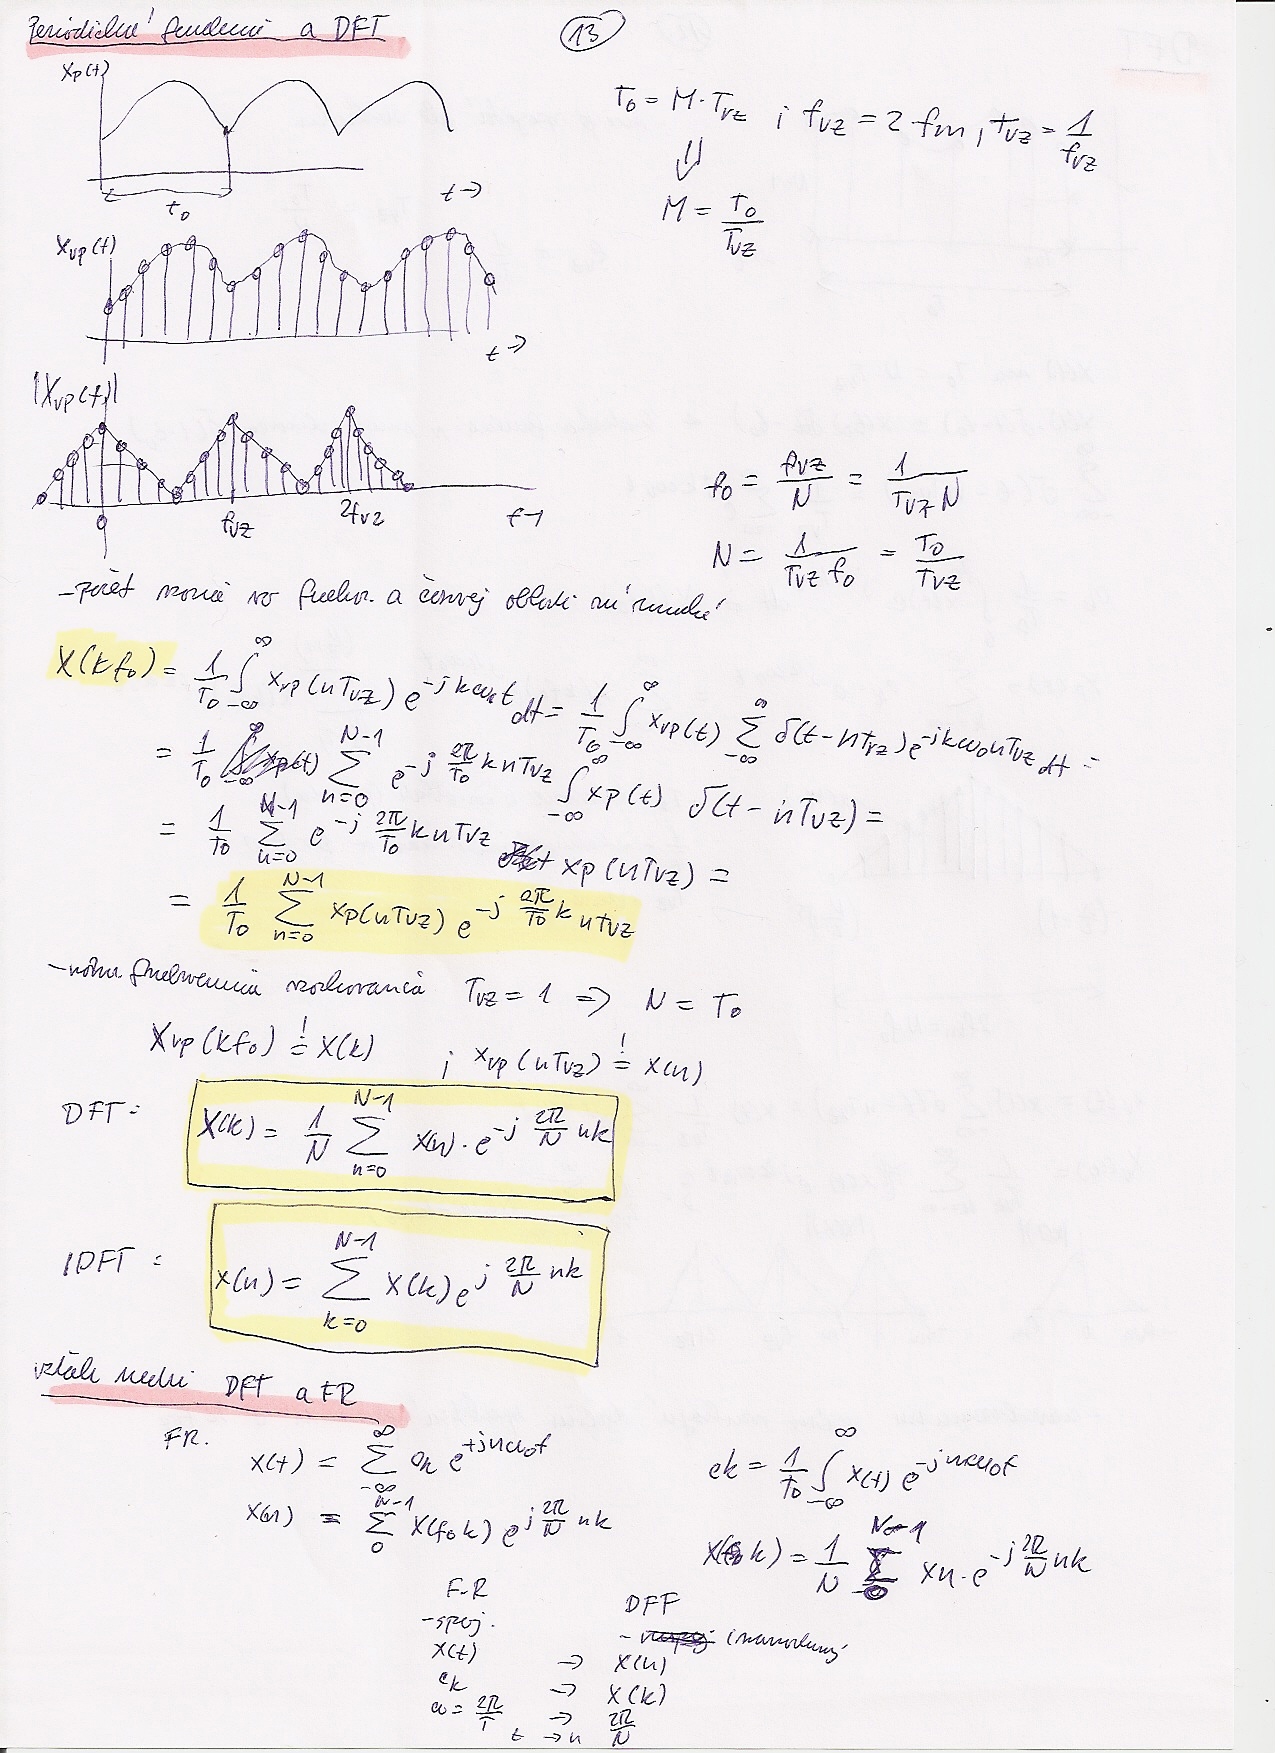 Periodické funkcie a DFT
13
xp(t)
t₀
t →
T₀ = M·Tvz ; fvz = 2fm, tvz = 1/fvz
⇓
M = T₀/Tvz
xvp(t)
t →
|Xvp(f)|
fvz 2fvz f →
f₀ = fvz/N = 1/(Tvz N)
N = 1/(Tvz f₀) = T₀/Tvz
- počet vzoriek vo a časovej oblasti
X(kf₀) = 1/T₀ ∫_{-∞}^{∞} xvp(nTvz) e^{-jkω₀t} dt = 1/T₀ ∫_{-∞}^{∞} xvp(t) ∑_{-∞}^{∞} δ(t-nTvz) e^{-jkω₀nTvz} dt =
= 1/T₀ ∑_{n=0}^{N-1} e^{-j 2π/T₀ knTvz} ∫_{-∞}^{∞} xp(t) δ(t-nTvz) =
= 1/T₀ ∑_{n=0}^{N-1} e^{-j 2π/T₀ knTvz} xp(nTvz) =
= 1/T₀ ∑_{n=0}^{N-1} xp(nTvz) e^{-j 2π/T₀ kntvz}
Tvz = 1 => N = T₀
Xvp(kf₀) =! X(k) ; xvp(nTvz) =! x(n)
DFT = X(k) = 1/N ∑_{n=0}^{N-1} x(n)·e^{-j 2π/N nk}
IDFT = x(n) = ∑_{k=0}^{N-1} X(k) e^{j 2π/N nk}
vzťah medzi DFT a FR
FR. x(t) = ∑_{-∞}^{∞} cn e^{+jnω₀t}
ck = 1/T₀ ∫_{-∞}^{∞} x(t) e^{-jnω₀t}
x(n) = ∑_{0}^{N-1} X(f₀k) e^{j 2π/N nk}
X(f₀k) = 1/N ∑_{0}^{N-1} xn·e^{-j 2π/N nk}
F-R DFF
- spoj. -
x(t) → x(n)
ck → X(k)
ω = 2π/T → 2π/N
t → n